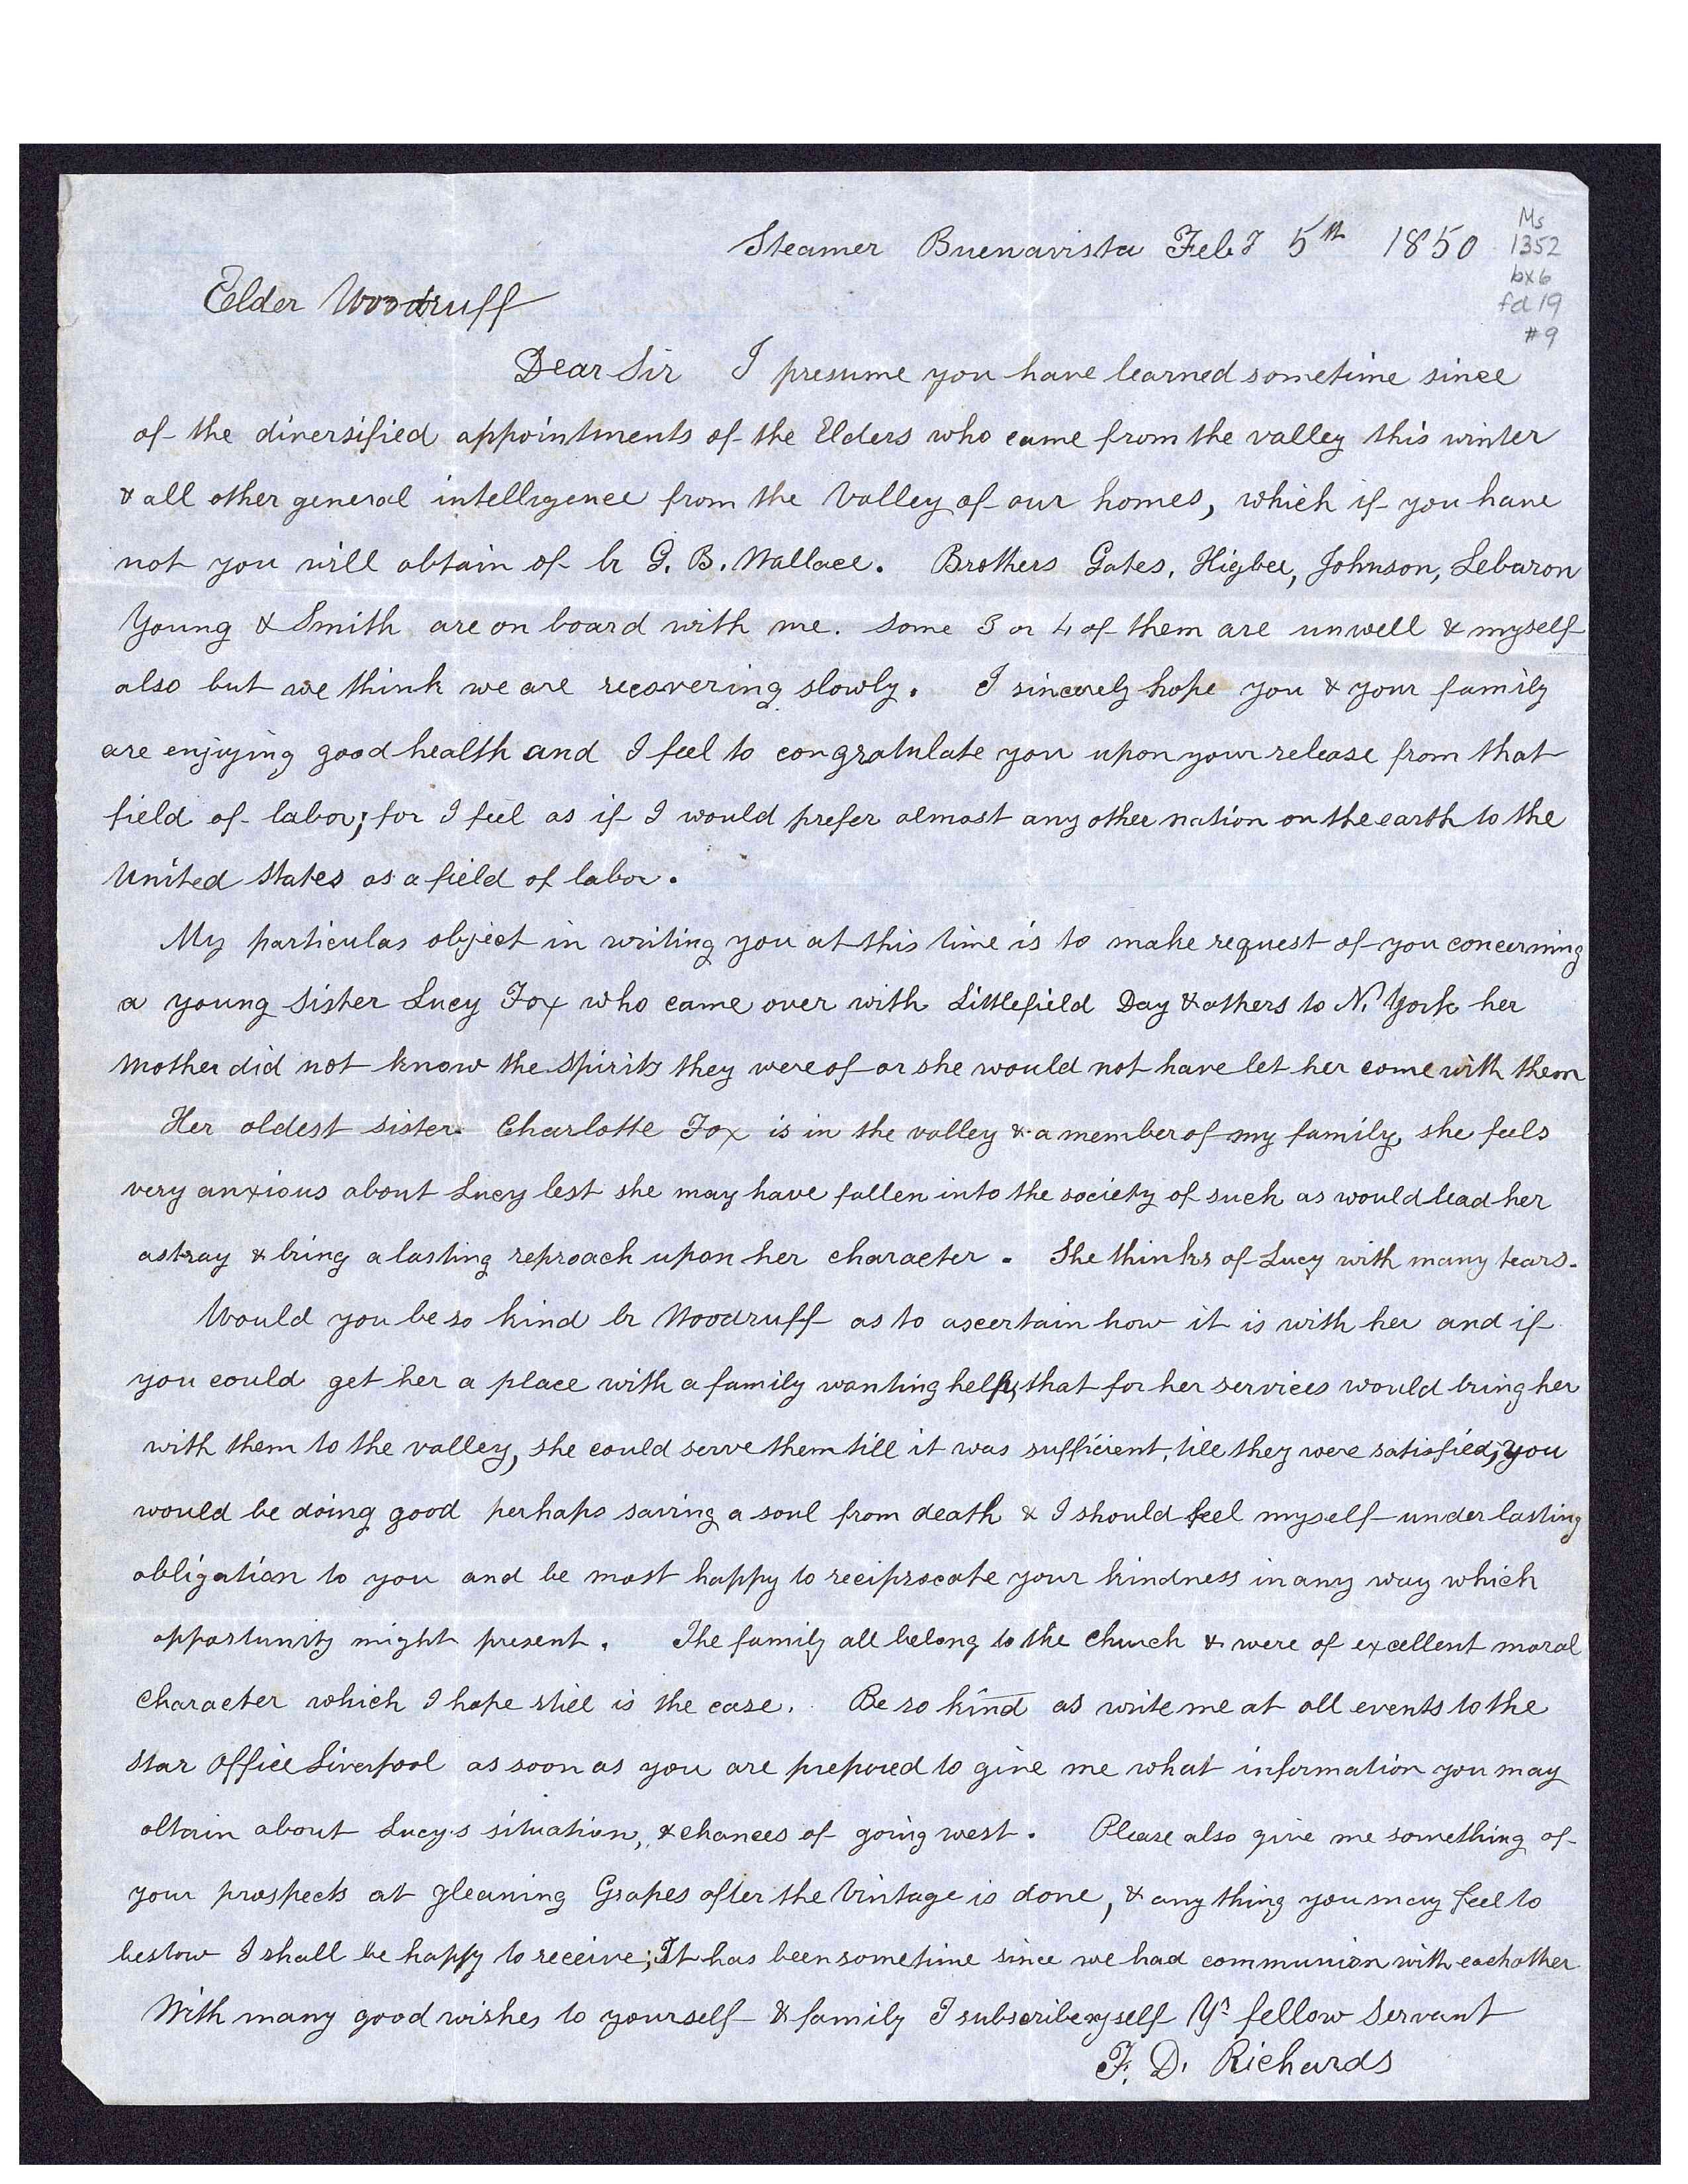 Steamer Buenavista Feby 5th 1850
Ms
1352
bx6
fd 19
#9
Elder Woodruff
Dear Sir I presume you have learned sometime since
of the diversified appointments of the Elders who came from the valley this winter
& all other general intelligence from the Valley of our homes, which if you have
not you will obtain of br G. B. Wallace. Brothers Gates, Higbee, Johnson, Lebaron
Young & Smith are on board with me. Some 3 or 4 of them are unwell & myself
also but we think we are recovering slowly. I sincerely hope you & your family
are enjoying good health and I feel to congratulate you upon your release from that
field of labor; for I feel as if I would prefer almost any other nation on the earth to the
United States as a field of labor.
My particular object in writing you at this time is to make request of you concerning
a young Sister Lucy Fox who came over with Littlefield Day & others to N. York her
Mother did not know the Spirits they were of or she would not have let her come with them
Her oldest sister. Charlotte Fox is in the valley & a member of my family, she feels
very anxious about Lucy lest she may have fallen into the society of such as would lead her
astray & bring a lasting reproach upon her character. She thinks of Lucy with many tears.
Would you be so kind br Woodruff as to ascertain how it is with her and if
you could get her a place with a family wanting help, that for her services would bring her
with them to the valley, she could serve them till it was sufficient, till they were satisfied, you
would be doing good perhaps saving a soul from death & I should feel myself under lasting
obligation to you and be most happy to reciprocate your kindness in any way which
opportunity might present. The family all belong to the Church & were of excellent moral
Character which I hope still is the case. Be so kind as write me at all events to the
Star Office Liverpool as soon as you are prepared to give me what information you may
obtain about Lucy's situation, & chances of going west. Please also give me something of
your prospects at gleaning Grapes after the Vintage is done, & any thing you may feel to
bestow I shall be happy to receive; It has been sometime since we had communion with eachother
With many good wishes to yourself & family I subscribe myself Yr fellow Servant
F. D. Richards